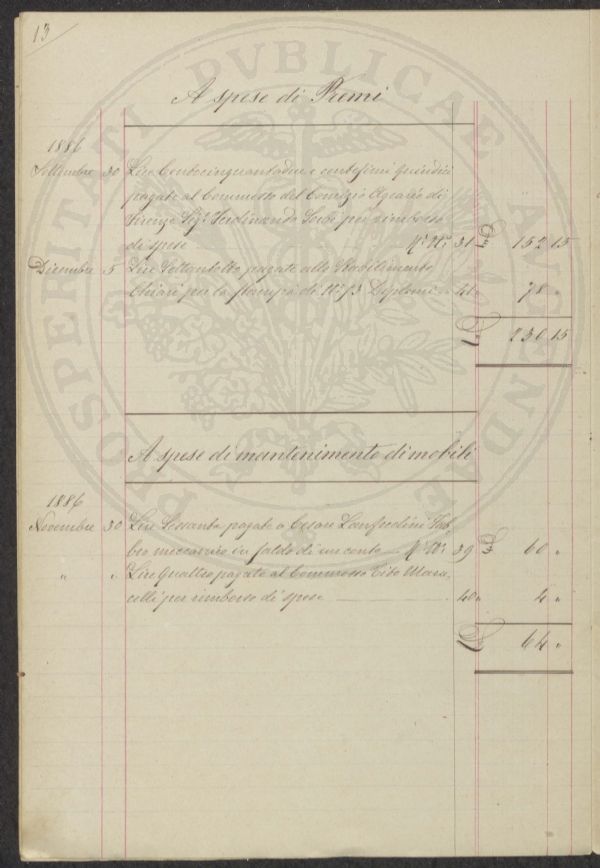 13
PROSPERITATI PVBLICAE AVGENDAE
A spese di Premi
1886
Settembre 30 Lire Centocinquantadue e centesimi quindici
pagate al Commesso del Comizio Agrario di
Firenze Sigr. Ferdinando per rimborso
di spese Mto. No. 31 £ 152 15
Dicembre 5 Lire Settantotto pagate allo Stabilimento
Chiari per la stampa di No. 13 Diplomi " 41 " 78 "
£ 230 15
A spese di mantenimento di mobili
1886
Novembre 30 Lire Sessanta pagate a Cesare Lanfredini Fab=
bro meccanico in saldo di un conto Mto. No. 39 £ 60 "
" " Lire Quattro pagate al Commesso Tito Mara=
celli per rimborso di spese 40 " 4 "
£ 64 "